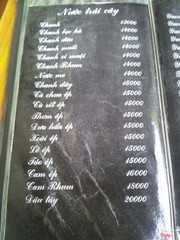 Nước trái cây
Chanh 12000
Chanh bạc hà 14000
Chanh dừa 14000
Chanh muối 14000
Chanh xí muội 14000
Chanh Rhum 14000
Nước me 14000
Chanh dây 15000
Cà chua ép 15000
Cà rốt ép 15000
Thơm ép 15000
Dưa hấu ép 15000
Xoài ép 15000
Lê ép 15000
Táo ép 15000
Cam ép 16000
Cam Rhum 18000
Dâu tây 20000